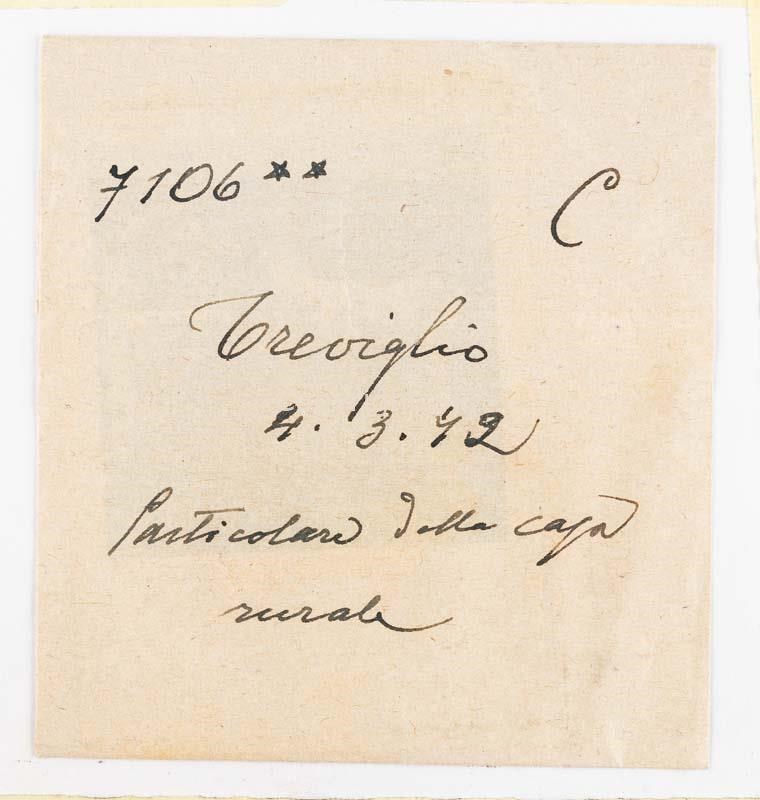 7106** C
Treviglio
4. 3. 42
Particolare della casa
rurale